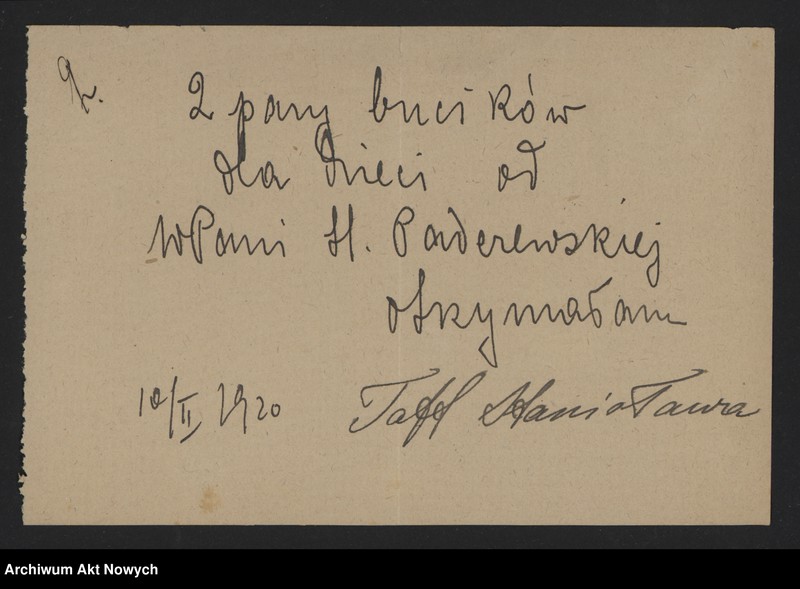 2.
2 pary bucików
dla dzieci od
WPani H. Paderewskiej
otrzymałam
10/II 1920 Taff Stanisława
Archiwum Akt Nowych